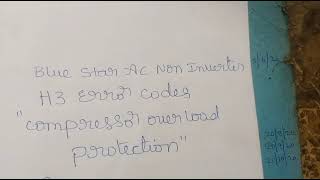 Blue Star AC Non Inverter
H3 Error codes
"compressor overload
protection"